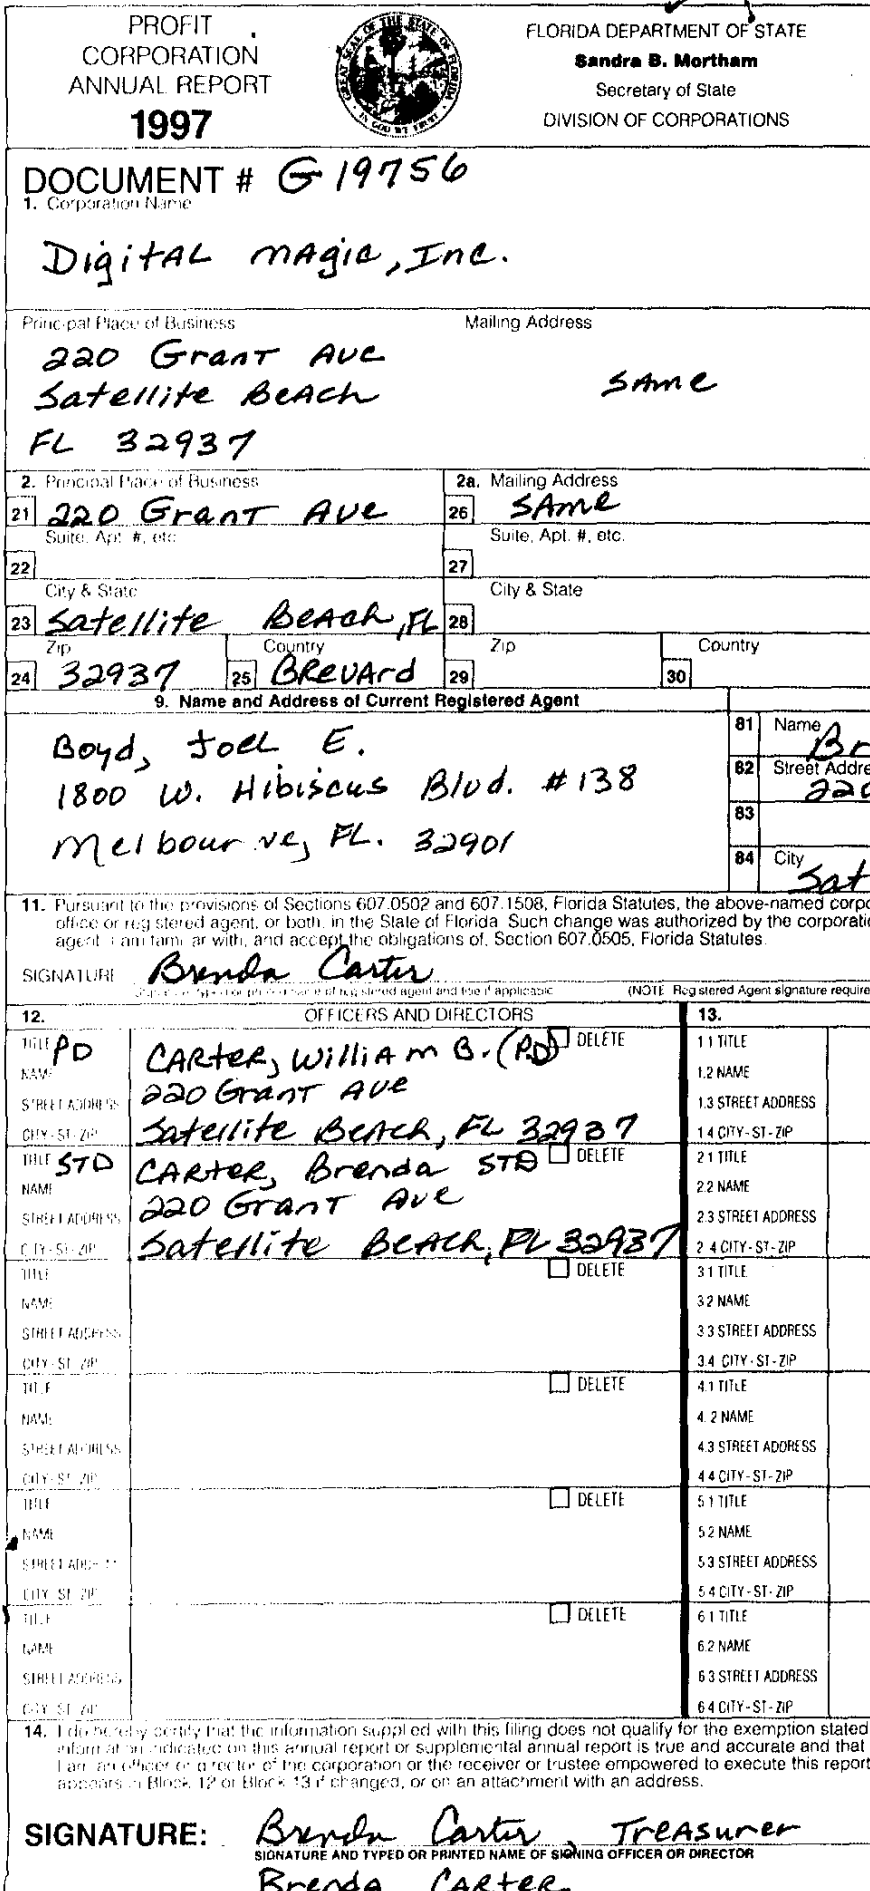 PROFIT
CORPORATION
ANNUAL REPORT
1997
GREAT SEAL OF THE STATE OF FLORIDA
IN GOD WE TRUST
FLORIDA DEPARTMENT OF STATE
Sandra B. Mortham
Secretary of State
DIVISION OF CORPORATIONS
DOCUMENT # G19756
1. Corporation Name
Digital Magic, Inc.
Principal Place of Business
Mailing Address
220 Grant Ave
Satellite Beach
FL 32937
Same
2. Principal Place of Business
2a. Mailing Address
21 220 Grant Ave
26 Same
Suite, Apt. #, etc.
Suite, Apt. #, etc.
22
27
City & State
City & State
23 Satellite Beach, FL
28
Zip
Country
Zip
Country
24 32937
25 Brevard
29
30
9. Name and Address of Current Registered Agent
Boyd, Joel E.
1800 W. Hibiscus Blvd. #138
Melbourne, FL. 32901
81 Name
Br
82 Street Addre
220
83
84 City
Sat
11. Pursuant to the provisions of Sections 607.0502 and 607.1508, Florida Statutes, the above-named corpo
office or registered agent, or both, in the State of Florida. Such change was authorized by the corporatio
agent. I am familiar with, and accept the obligations of, Section 607.0505, Florida Statutes.
SIGNATURE Brenda Carter
Signature, typed or printed name of registered agent and title if applicable
(NOTE Registered Agent signature require
12. OFFICERS AND DIRECTORS
13.
TITLE PD
NAME CARTER, William B. (PD)
DELETE
STREET ADDRESS 220 Grant Ave
CITY-ST-ZIP Satellite Beach, FL 32937
1 1 TITLE
1.2 NAME
1.3 STREET ADDRESS
1 4 CITY-ST-ZIP
TITLE STD
NAME CARTER, Brenda STD
DELETE
STREET ADDRESS 220 Grant Ave
CITY-ST-ZIP Satellite Beach, FL 32937
2 1 TITLE
2.2 NAME
2.3 STREET ADDRESS
2 4 CITY-ST-ZIP
TITLE
DELETE
NAME
STREET ADDRESS
CITY-ST-ZIP
3 1 TITLE
3 2 NAME
3 3 STREET ADDRESS
3.4 CITY-ST-ZIP
TITLE
DELETE
NAME
STREET ADDRESS
CITY-ST-ZIP
4.1 TITLE
4. 2 NAME
4.3 STREET ADDRESS
4 4 CITY-ST-ZIP
TITLE
DELETE
NAME
STREET ADDRESS
CITY-ST-ZIP
5 1 TITLE
5.2 NAME
5 3 STREET ADDRESS
5 4 CITY-ST-ZIP
TITLE
DELETE
NAME
STREET ADDRESS
CITY-ST-ZIP
6 1 TITLE
6.2 NAME
6 3 STREET ADDRESS
6 4 CITY-ST-ZIP
14. I do hereby certify that the information supplied with this filing does not qualify for the exemption stated
information indicated on this annual report or supplemental annual report is true and accurate and that
I am an officer or director of the corporation or the receiver or trustee empowered to execute this report
appears in Block 12 or Block 13 if changed, or on an attachment with an address.
SIGNATURE: Brenda Carter, Treasurer
SIGNATURE AND TYPED OR PRINTED NAME OF SIGNING OFFICER OR DIRECTOR
Brenda CARTER